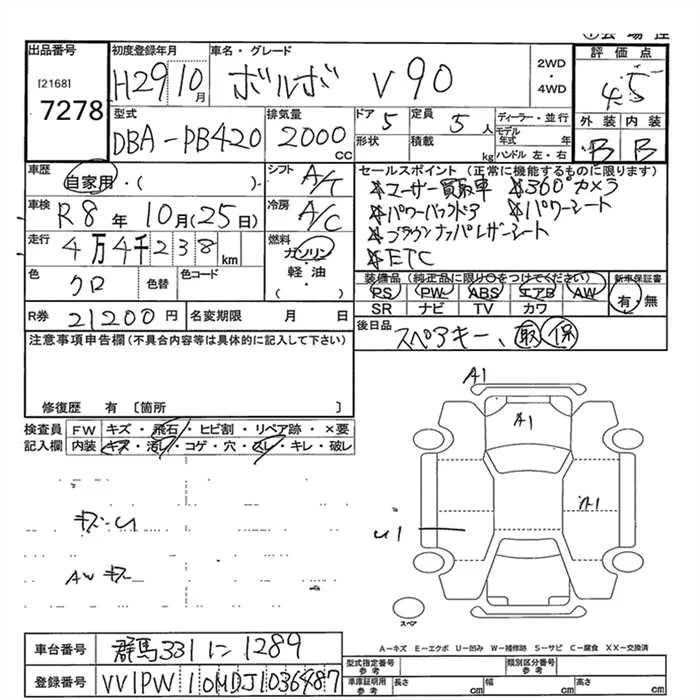 ①会場控
出品番号 初度登録年月 車名・グレード 2WD・4WD 評価点
[2168]
7278
H29 10月 ボルボ V90 4.5
型式 排気量 ドア 定員 ディーラー・並行
DBA-PB420 2000CC 5 5人
形状 積載 kg
モデル年式 年
ハンドル 左・右
外装 内装
B B
車歴 自家用・( )
シフト A/T
車検 R8年10月(25日)
冷房 A/C
走行 4万4千238km
燃料 ガソリン・軽油・( )
色 クロ 色替 色コード
セールスポイント(正常に機能するものに限ります)
※ユーザー買取車 ※360°カメラ
※パワーバックドア ※パワーシート
※ブラウンナッパレザーシート
※ETC
装備品(純正品に限り○をつけてください) 新車保証書
PS PW ABS エアB AW 有・無
SR ナビ TV カワ
R券 21200円 名変期限 月 日
後日品 スペアキー、取 保
注意事項申告欄(不具合内容等は具体的に記入して下さい)
修復歴 有〔箇所 〕
検査員記入欄
FW キズ・飛石・ヒビ割・リペア跡・×要
内装 キズ・汚レ・コゲ・穴・スレ・キレ・破レ
キズ・U
AWキズ
A1
A1
A1
U1
スペア
A－キズ E－エクボ U－凹み W－補修跡 S－サビ C－腐食 XX－交換済
車台番号 群馬331に1289
登録番号 VV1PW10MDJ1036487
型式指定番号 参考 類別区分番号 参考
車庫証明用 参考 長さ cm 幅 cm 高さ cm